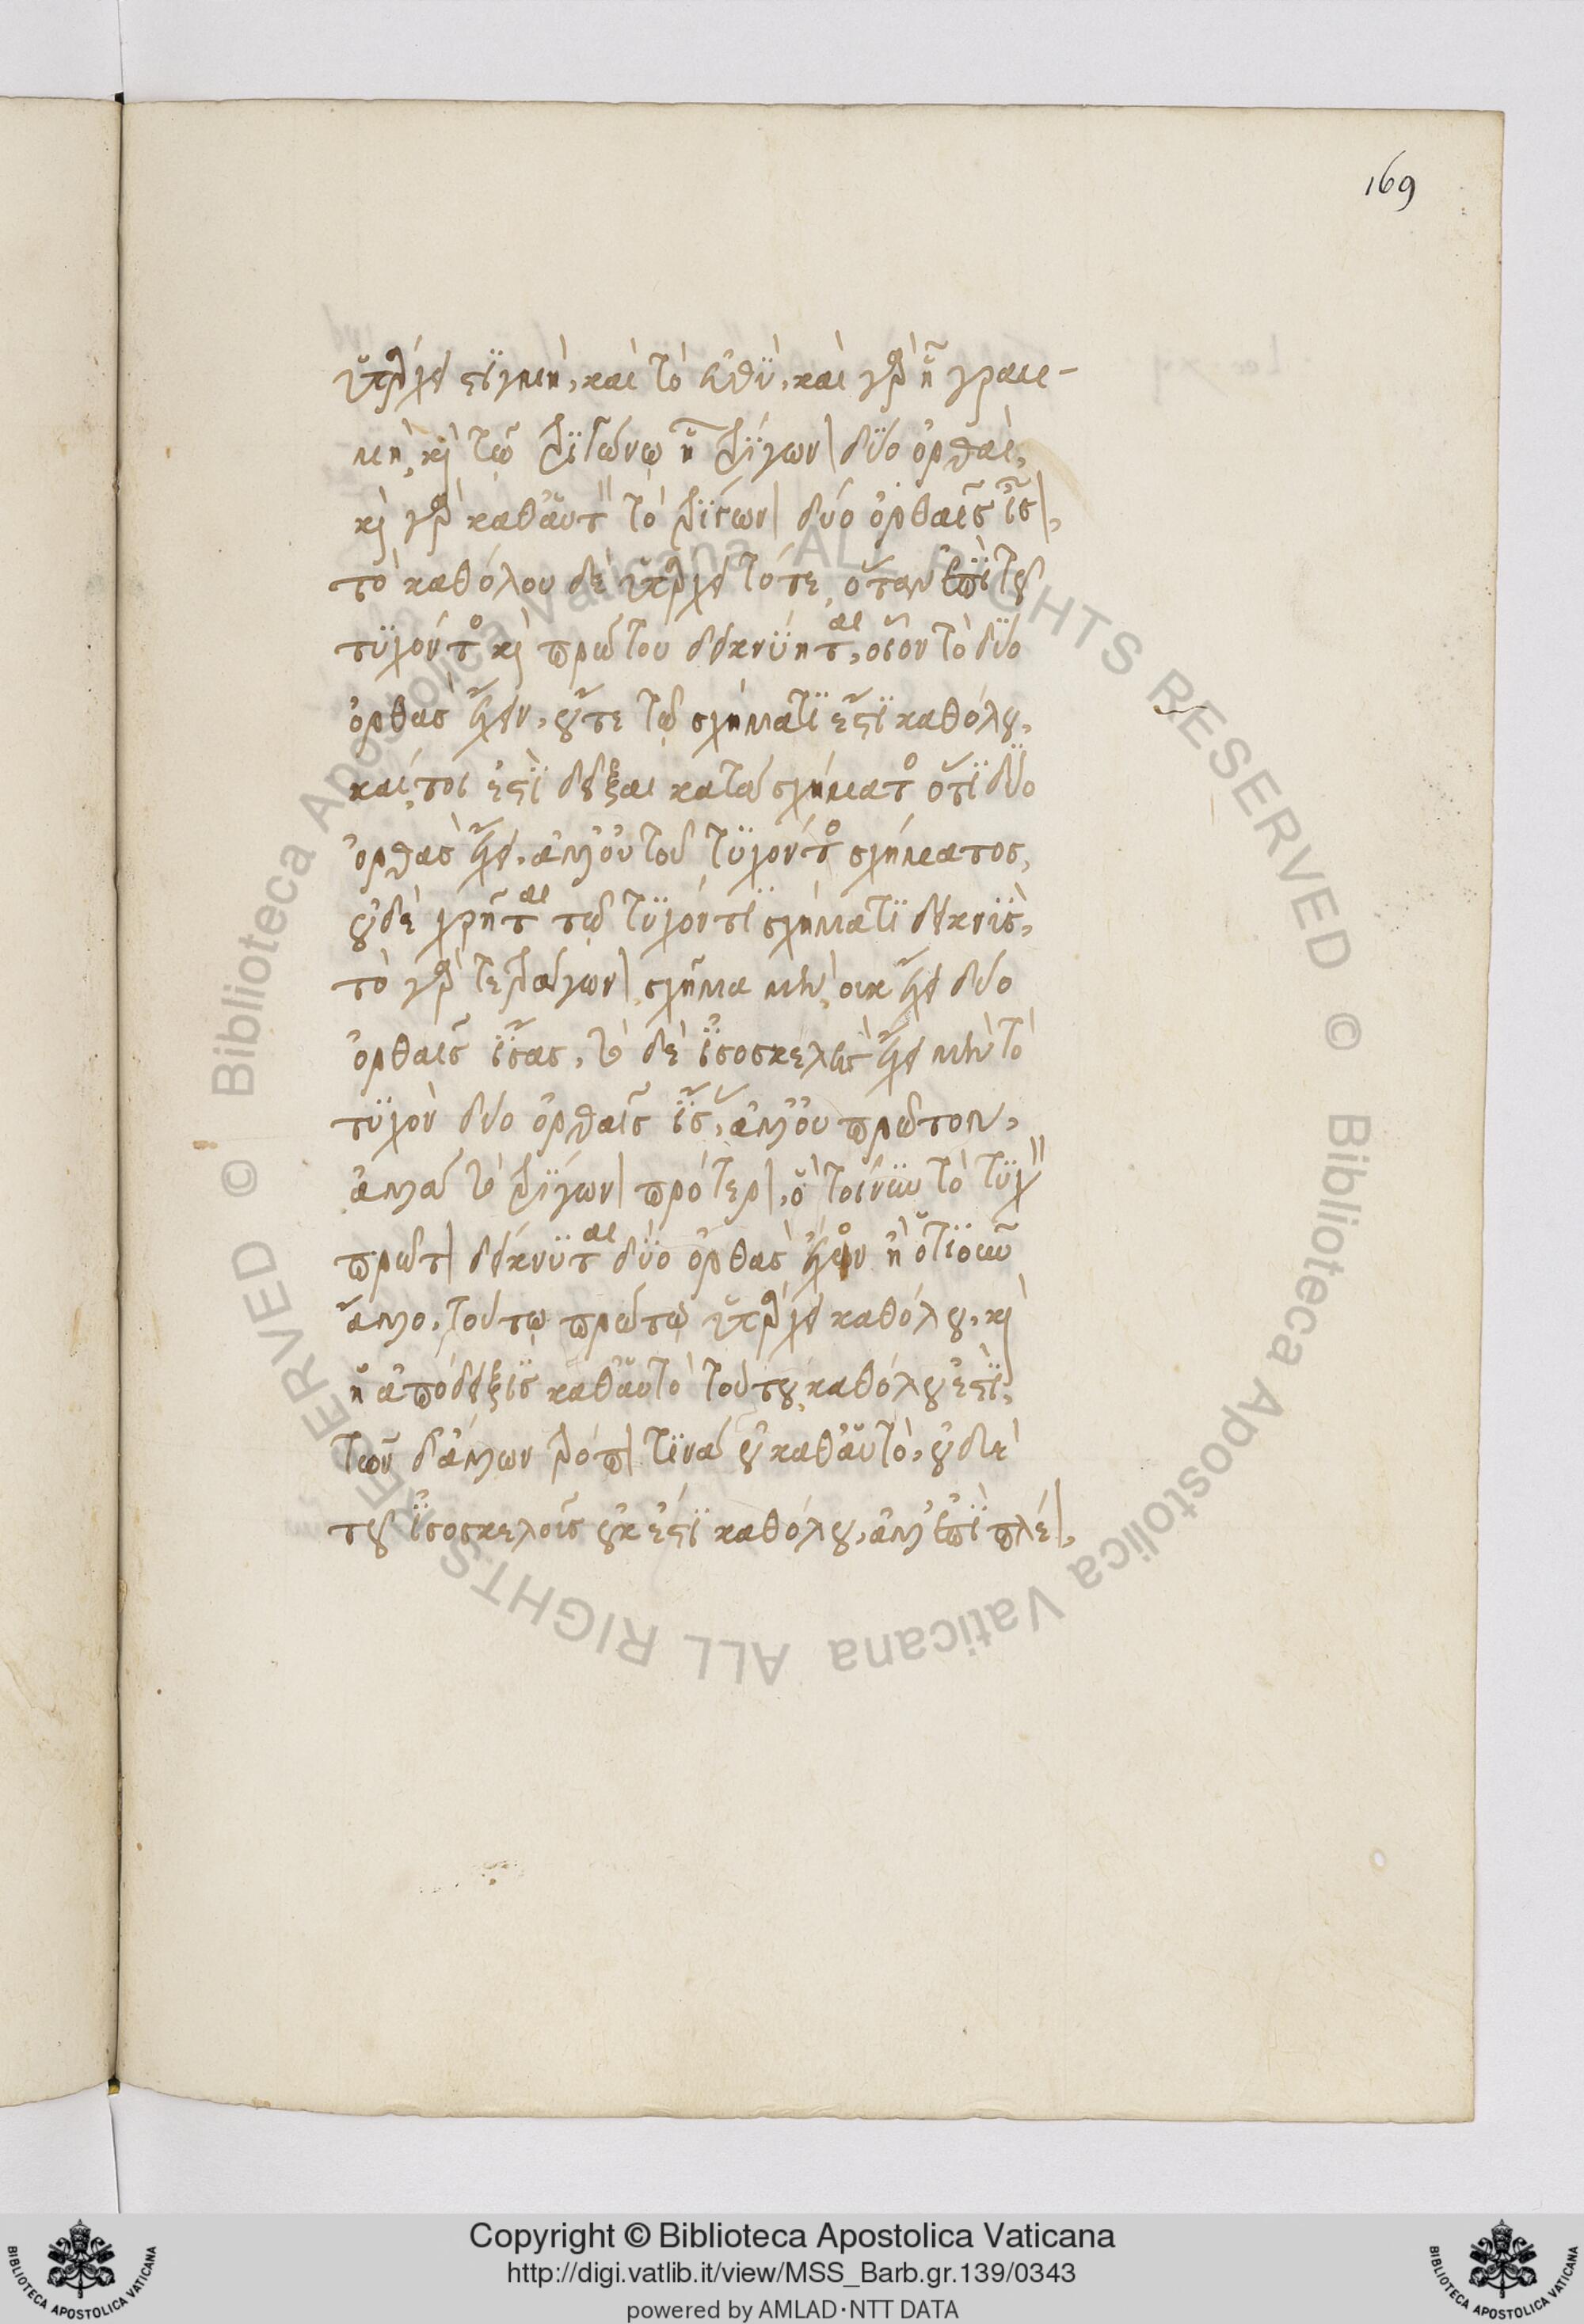 169
ὑπάρχει στιγμὴ, καὶ τὸ εὐθὺ, καὶ γὰρ ἡ γραμ-
μὴ, καὶ τῷ τριγώνῳ ἡ τρίγωνον δύο ὀρθαὶ,
καὶ γὰρ καθ' αὑτὸ τὸ τρίγωνον δύο ὀρθαῖς ἴσον,
τὸ καθόλου δὲ ὑπάρχει τότε, ὅταν ἐπὶ τοῦ
τυχόντος καὶ πρώτου δεικνύηται, οἷον τὸ δύο
ὀρθὰς ἔχειν, οὔτε τῷ σχήματί ἐστι καθόλου,
καίτοι ἔστι δεῖξαι κατὰ σχήματος ὅτι δύο
ὀρθὰς ἔχει, ἀλλ' οὐ τοῦ τυχόντος σχήματος,
οὐδὲ χρῆται τῷ τυχόντι σχήματι δεικνὺς,
τὸ γὰρ τετράγωνον σχῆμα μὲν, οὐκ ἔχει δύο
ὀρθαῖς ἴσας, τὸ δὲ ἰσοσκελὲς ἔχει μὲν τὸ
τυχὸν δύο ὀρθαῖς ἴσας, ἀλλ' οὐ πρῶτον,
ἀλλὰ τὸ τρίγωνον πρότερον, ὃ τοίνυν τὸ τυχὸν
πρῶτον δείκνυται δύο ὀρθὰς ἔχον ἢ ὁτιοῦν
ἄλλο, τούτῳ πρώτῳ ὑπάρχει καθόλου, καὶ
ἡ ἀπόδειξις καθ' αὑτὸ τούτου καθόλου ἐστὶ,
τῶν δ' ἄλλων τρόπον τινὰ οὐ καθ' αὑτὸ, οὐδὲ
τοῦ ἰσοσκελοῦς οὐκ ἔστι καθόλου, ἀλλ' ἐπὶ πλέον,
Copyright © Biblioteca Apostolica Vaticana
http://digi.vatlib.it/view/MSS_Barb.gr.139/0343
powered by AMLAD·NTT DATA
BIBLIOTECA APOSTOLICA VATICANA
BIBLIOTECA APOSTOLICA VATICANA
© Biblioteca Apostolica Vaticana ALL RIGHTS RESERVED
© Biblioteca Apostolica Vaticana ALL RIGHTS RESERVED